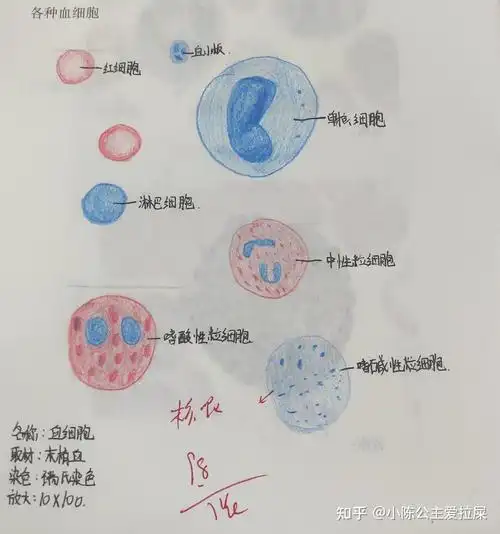 各种血细胞
红细胞
血小板
单核细胞
淋巴细胞.
中性粒细胞
嗜酸性粒细胞
嗜碱性粒细胞.
名称:血细胞
取材:末梢血
染色:瑞氏染色
放大:10×100.
知乎 @小陈公主爱拉屎